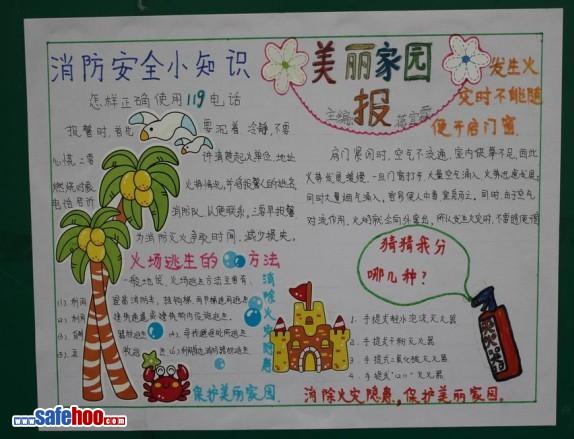 消防安全小知识
怎样正确使用119电话
报警时,首先要沉着、冷静,不要
心慌,要
许清楚起火单位、地址
燃烧对象
火势情况,并将报警人的姓名、
电话告诉
消防队,以便联系,
为消防灭火争取时间,减少损失。
美丽家园
报
主编
发生火
灾时不能随
便开启门窗
门窗紧闭时,空气不流通,室内供氧不足,因此
火势发展缓慢,一旦门窗打开,大量空气涌入,火势迅速发展;
同时大量烟气涌入,容易使人中毒窒息而亡。同时,由于空气
对流作用,火焰就会向外窜出,所以发生火灾时,不要随便
火场逃生的方法
一般地说,火场逃生方法主要有:
(1)利用
消除火灾隐患
保护美丽家园
猜猜我分
哪几种?
1、手提式
2、手提式干粉灭火器
3、手提式二氧化碳灭火器
4、手提式
灭火器
消除火灾隐患,保护美丽家园。
www.safehoo.com